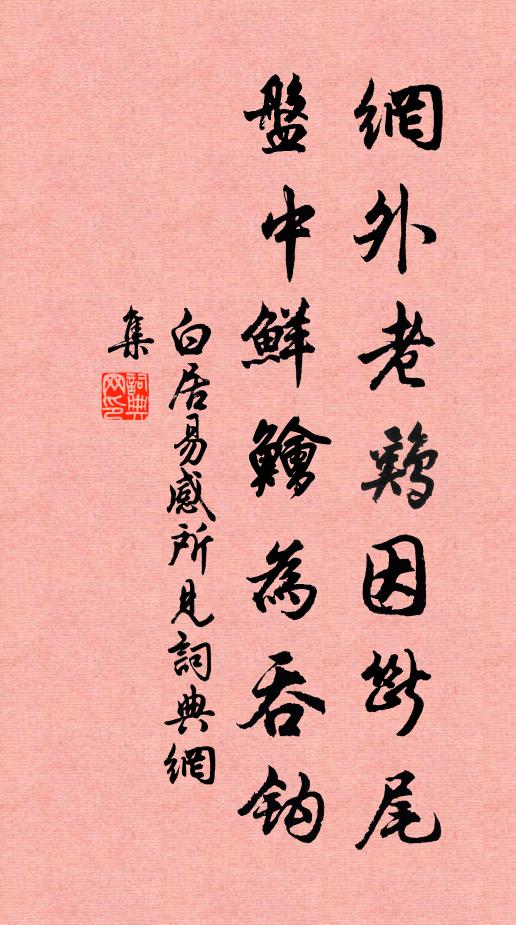 網外老鷄因斷尾
盤中鮮鱠為吞鈎
白居易感所見詞典網
集
詞典
网印